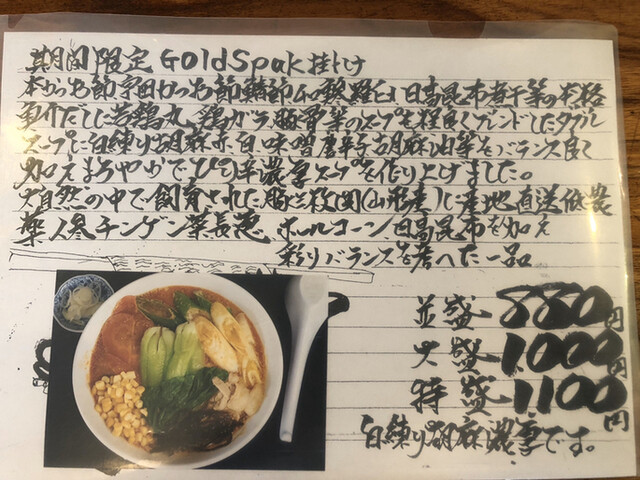 期間限定 GoldSpak掛け
本かつお節宗田かつお節鯖節ムロ鰺節白口日高昆布煮干等の本格
魚介だしと若鶏丸、鶏ガラ豚骨等のスープを程良くブレンドしたダブル
スープに白練り胡麻赤白味噌唐辛子胡麻油等をバランス良く
加えまろやかでピリ辛濃厚スープを作り上げました。
大自然の中で飼育された豚三枚肉(山形産)に産地直送低農
薬人参チンゲン菜長葱、ホールコーン日高昆布を加え
彩りバランスを考へた一品
並盛 880円
大盛 1.000円
特盛 1.100円
白練り胡麻濃厚です。